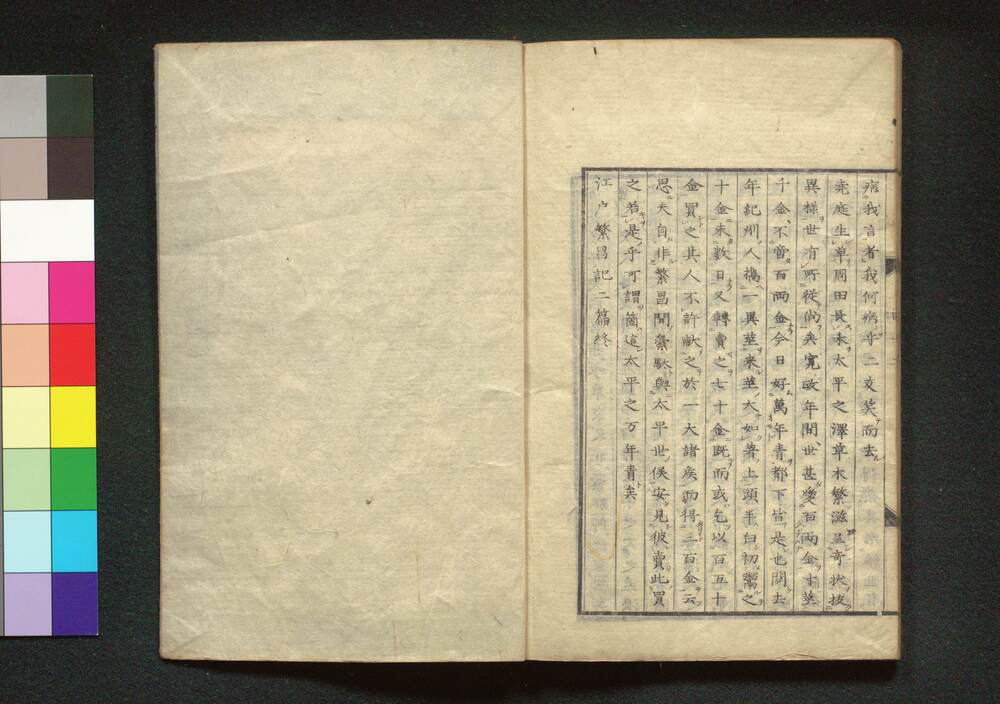 病我言者我何病乎二叟笑而去
堯庭生草周田長禾太平之澤草木繁滋呈奇状抜
異様世有所從尚矣寛政年間世甚愛百両金寸莖
千金不啻百両金今日好萬年青都下皆是也聞去
年紀州人携一異莖来莖大如箸上頭半白初鬻之
十金未数日又轉賣之七十金既而或乞以百五十
金買之其人不許献之於一大諸矦而得三百金云
思夫自非繁昌間橐駄與太平世矦安見彼賣此買
之若是乎可謂箇這太平之万年青矣
江戸繁昌記二篇終